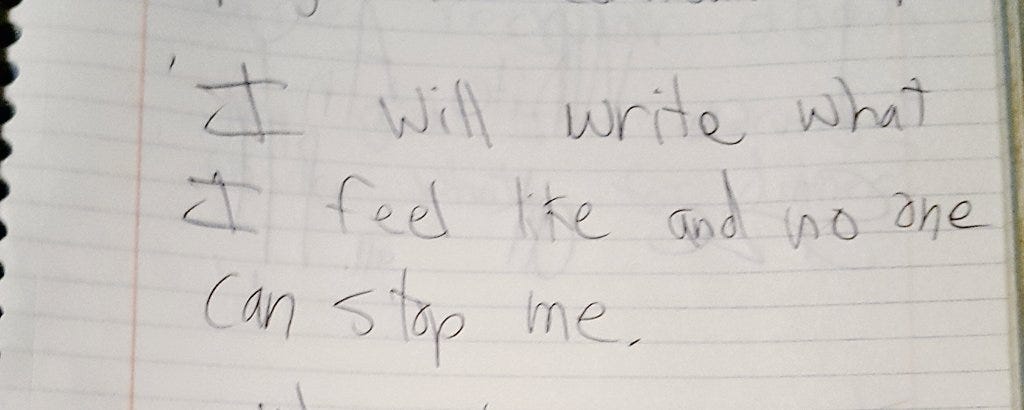 I will write what
I feel like and no one
can stop me.